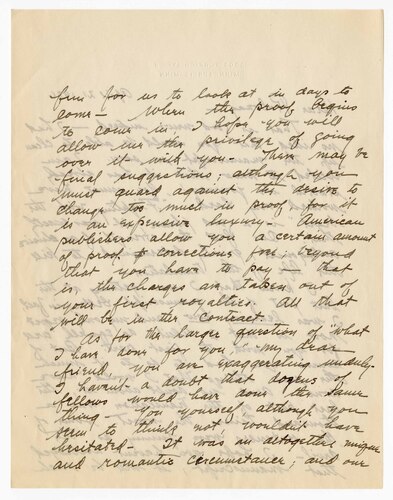 fun for us to look at in days to
come - When the proof begins
to come in I hope you will
allow me the privilege of going
over it with you - There may be
final suggestions; although you
must guard against the desire to
change too much in proof for it
is an expensive luxury - American
publishers allow you a certain amount
of proof & corrections free; beyond
that you have to pay - that
is the charges are taken out of
your first royalties. All that
will be in the contract.
As for the larger question of "what
I have done for you," my dear
friend, you are exaggerating unduly.
I havent a doubt that dozens of
fellows would have done the same
thing - You yourself, although you
seem to think not wouldnt have
hesitated - It was an altogether unique
and romantic circumstance; and one